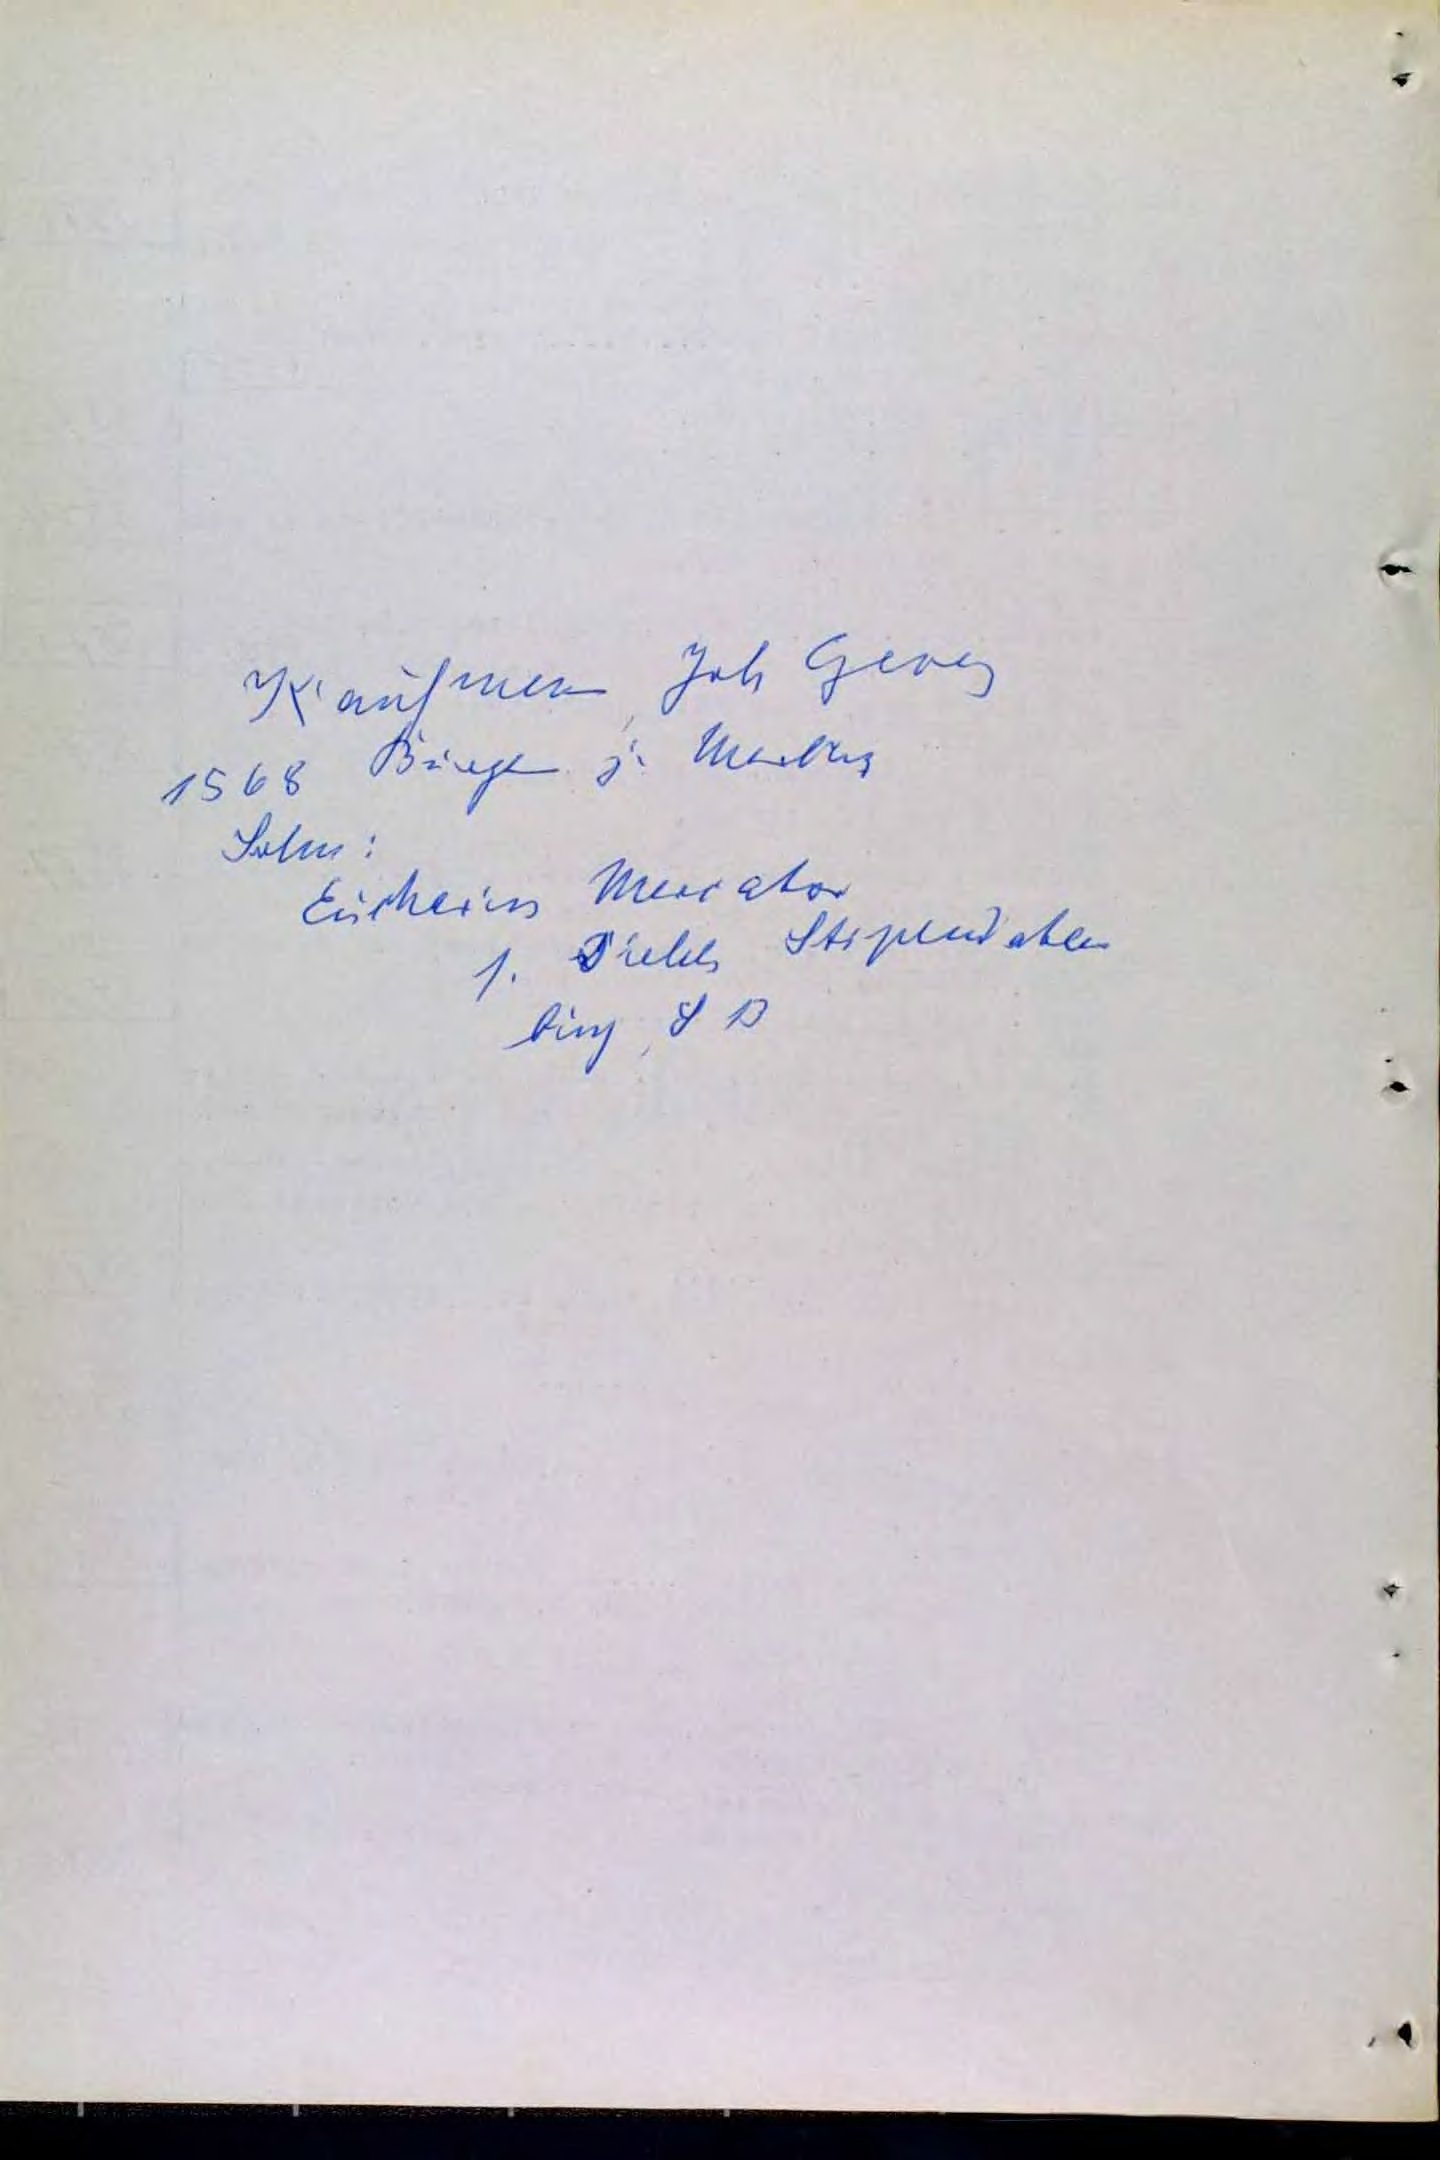 Kaufmann, Joh Georg
1568 Bürger i. Marburg
Sohn:
Eucharius Mercator
s. Diehls Stipendiaten
buch, S 13